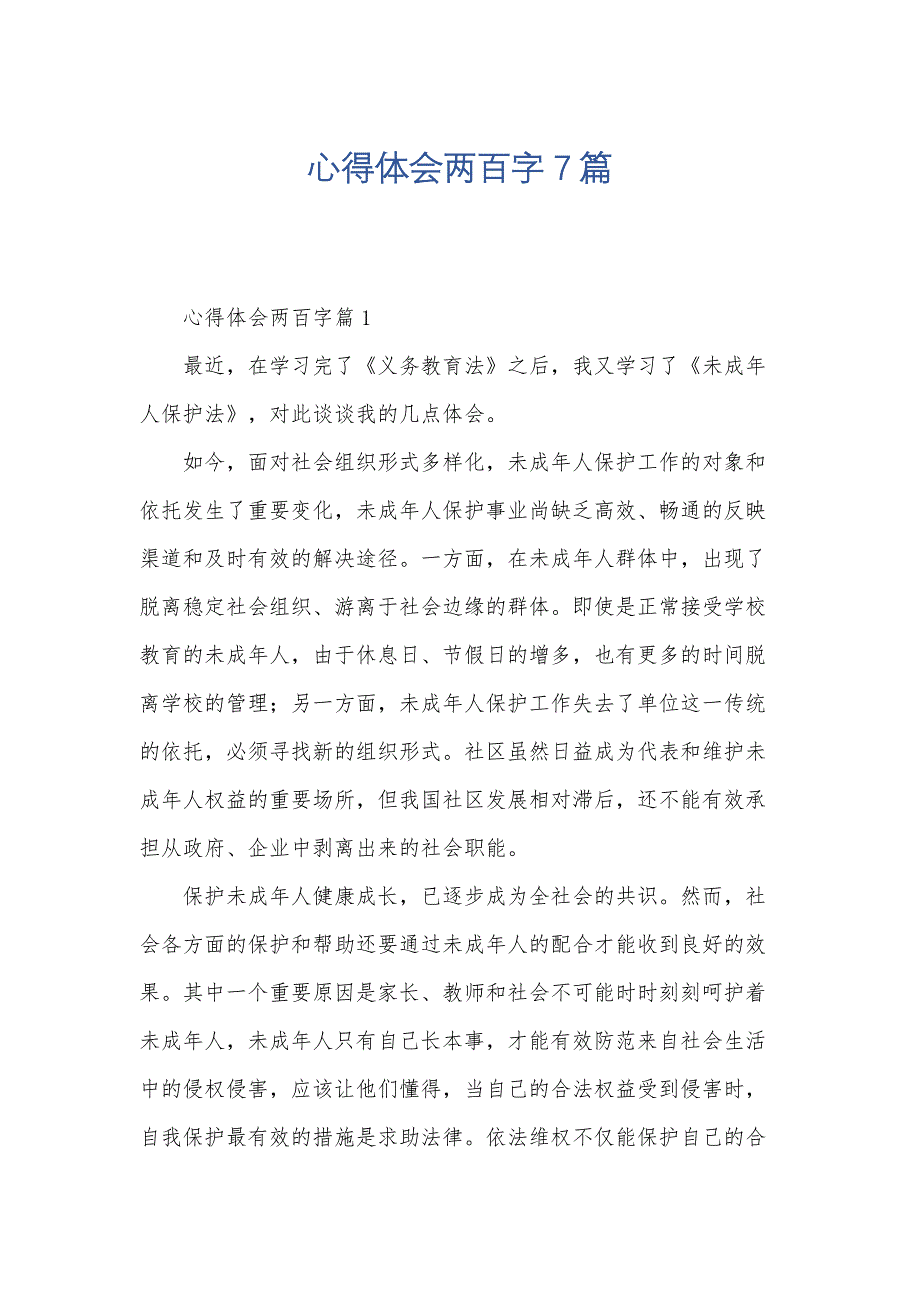 心得体会两百字7篇
心得体会两百字篇1
最近，在学习完了《义务教育法》之后，我又学习了《未成年
人保护法》，对此谈谈我的几点体会。
如今，面对社会组织形式多样化，未成年人保护工作的对象和
依托发生了重要变化，未成年人保护事业尚缺乏高效、畅通的反映
渠道和及时有效的解决途径。一方面，在未成年人群体中，出现了
脱离稳定社会组织、游离于社会边缘的群体。即使是正常接受学校
教育的未成年人，由于休息日、节假日的增多，也有更多的时间脱
离学校的管理；另一方面，未成年人保护工作失去了单位这一传统
的依托，必须寻找新的组织形式。社区虽然日益成为代表和维护未
成年人权益的重要场所，但我国社区发展相对滞后，还不能有效承
担从政府、企业中剥离出来的社会职能。
保护未成年人健康成长，已逐步成为全社会的共识。然而，社
会各方面的保护和帮助还要通过未成年人的配合才能收到良好的效
果。其中一个重要原因是家长、教师和社会不可能时时刻刻呵护着
未成年人，未成年人只有自己长本事，才能有效防范来自社会生活
中的侵权侵害，应该让他们懂得，当自己的合法权益受到侵害时，
自我保护最有效的措施是求助法律。依法维权不仅能保护自己的合